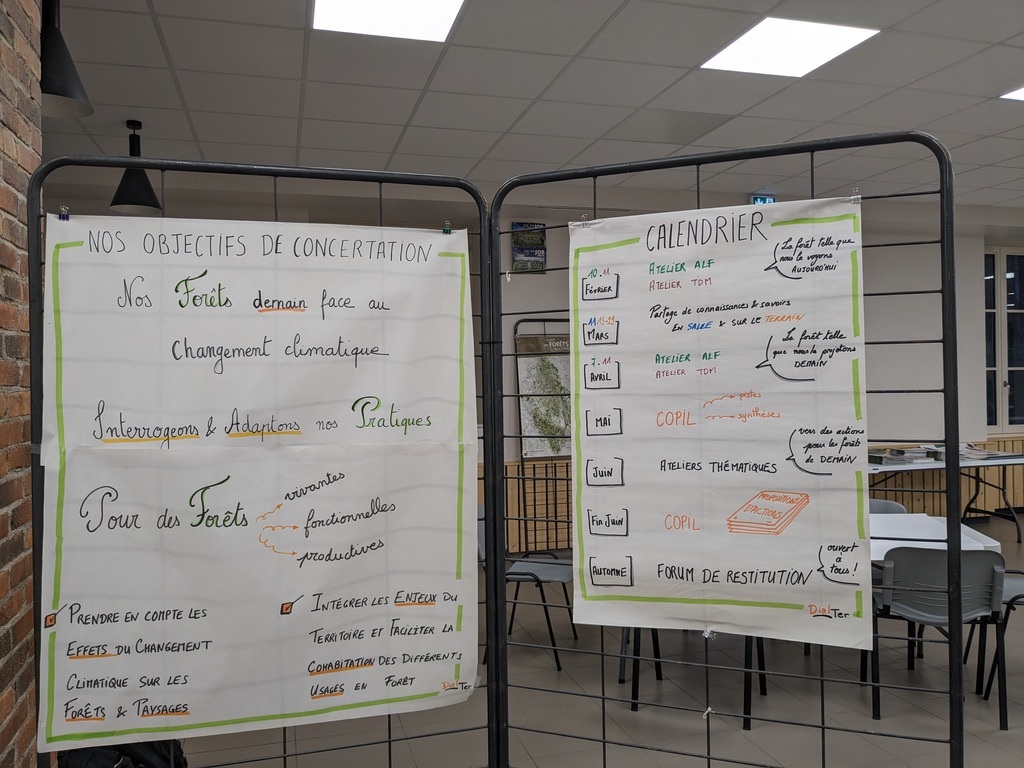 NOS OBJECTIFS DE CONCERTATION
Nos Forêts demain face au
Changement climatique
Interrogeons & Adaptons nos Pratiques
Pour des Forêts
vivantes
fonctionnelles
productives
PRENDRE EN COMPTE LES
EFFETS DU CHANGEMENT
CLIMATIQUE SUR LES
FORÊTS & PAYSAGES
INTÉGRER LES ENJEUX DU
TERRITOIRE ET FACILITER LA
COHABITATION DES DIFFÉRENTS
USAGES EN FORÊT
Dial Ter
CALENDRIER
10.11
FÉVRIER
ATELIER ALF
ATELIER TDM
La forêt telle que
nous la voyons
AUJOURD'HUI
MARS
Partage de connaissances & savoirs
EN SALLE & SUR LE TERRAIN
7.11
AVRIL
ATELIER ALF
ATELIER TDM
La forêt telle
que nous la projetons
DEMAIN
MAI
COPIL
pistes
synthèses
JUIN
ATELIERS THÉMATIQUES
vers des actions
pour les forêt
de DEMAIN
Fin JUIN
COPIL
PROPOSITIONS
D'ACTIONS
AUTOMNE
FORUM DE RESTITUTION
ouvert
à
tous !
Dial Ter